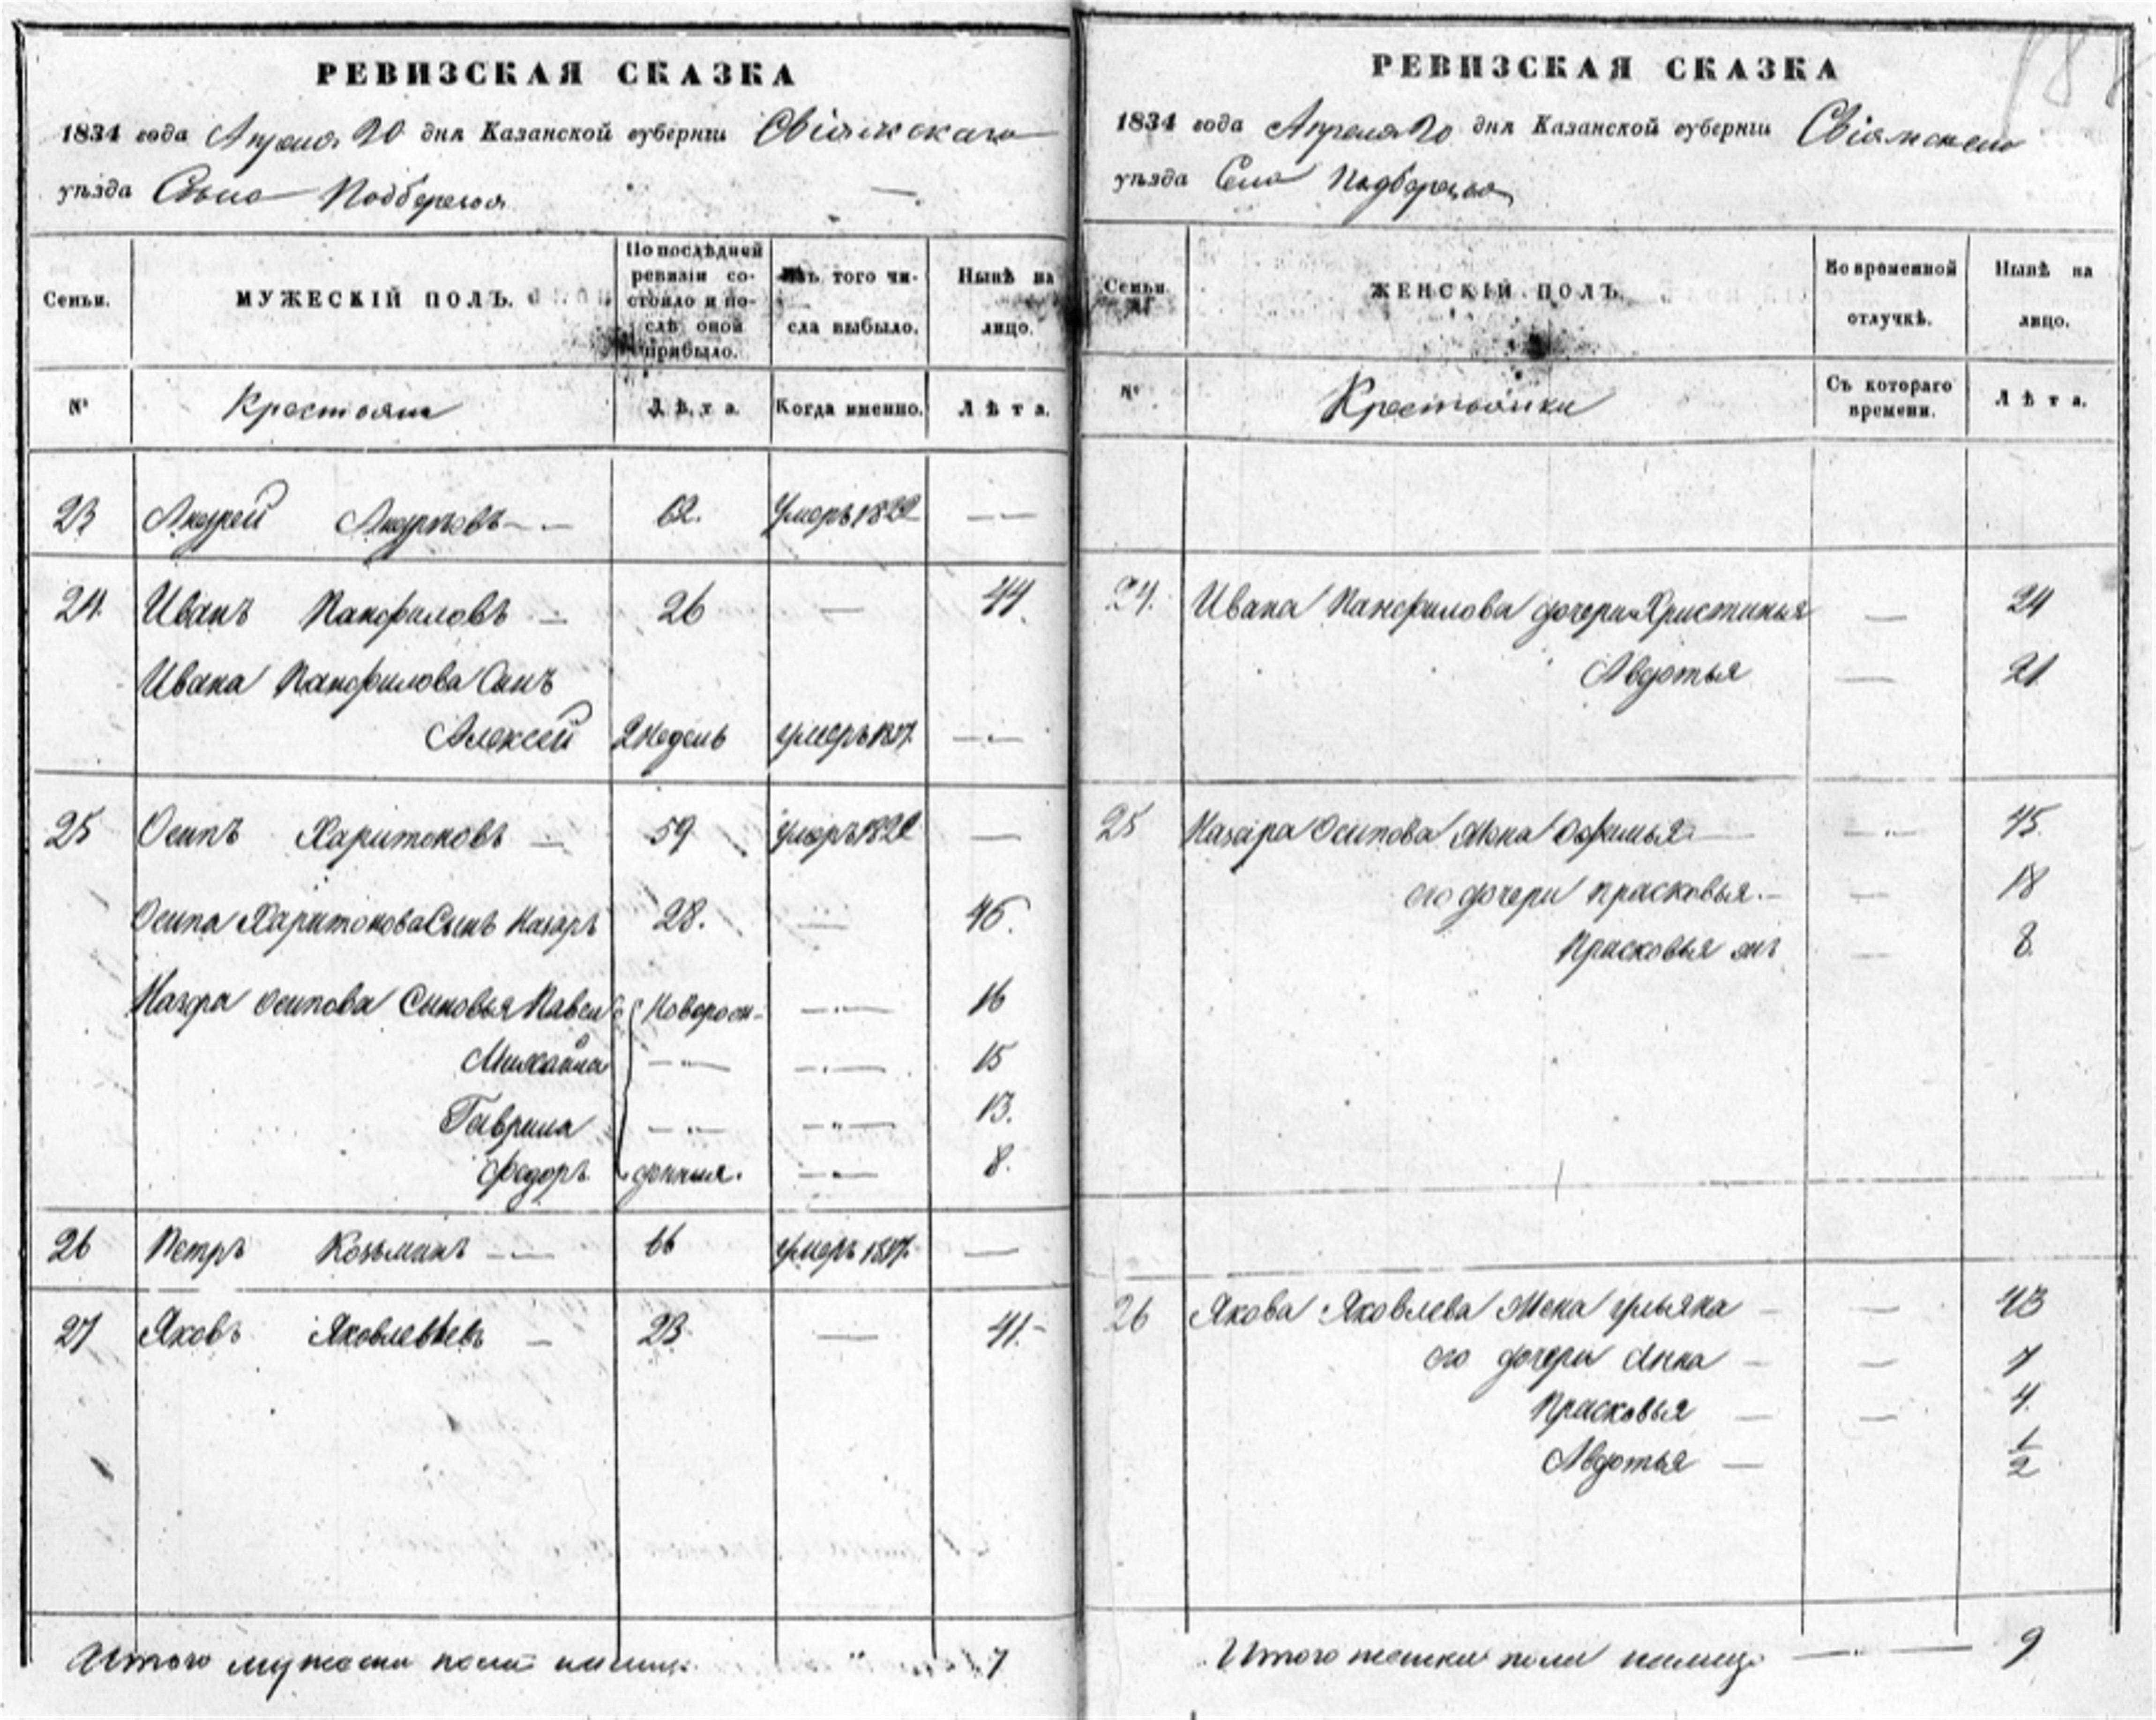 РЕВИЗСКАЯ СКАЗКА
1834 года Апреля 20 дня Казанской губернии Свіяжскаго
уѣзда Села Подберезья
Семьи. МУЖЕСКІЙ ПОЛЪ. По послѣдней ревизіи состояло и послѣ оной прибыло. Изъ того числа выбыло. Нынѣ на лицо.
№ Крестьяне Лѣта. Когда именно. Лѣта.
23 Андрей Андреевъ 62. умеръ 1822 —
24. Иванъ Панфиловъ — 26 — 44.
Ивана Панфилова Сынъ
Алексей 2 недель умеръ 1817. —
25 Осипъ Харитоновъ — 59 умеръ 1822 —
Осипа Харитонова Сынъ Назаръ 28. — 46.
Назара Осипова Сыновья Павелъ Новорож- — 16
Михайла — — 15
Гаврила — — 13.
Федоръ денныя. — 8.
26 Петръ Козьминъ — 66 умеръ 1817. —
27 Яковъ Яковлевъ — 23 — 41.
Итого мужеска пола налицо 7
РЕВИЗСКАЯ СКАЗКА
1834 года Апреля 20 дня Казанской губерніи Свіяжскаго
уѣзда Села Подберезья
Семьи. ЖЕНСКІЙ ПОЛЪ. Во временной отлучкѣ. Нынѣ на лицо.
№ Крестьянки Съ котораго времени. Лѣта.
24. Ивана Панфилова дочери Христинья — 24
Авдотья — 21
25 Назара Осипова Жена Офимья — 45.
его дочери Прасковья. — 18
Прасковья — 8
26 Якова Яковлева Жена Ульяна — 43
его дочери Анна — 7
Прасковья — 4.
Авдотья — 1/2
Итого женска пола налицо — 9